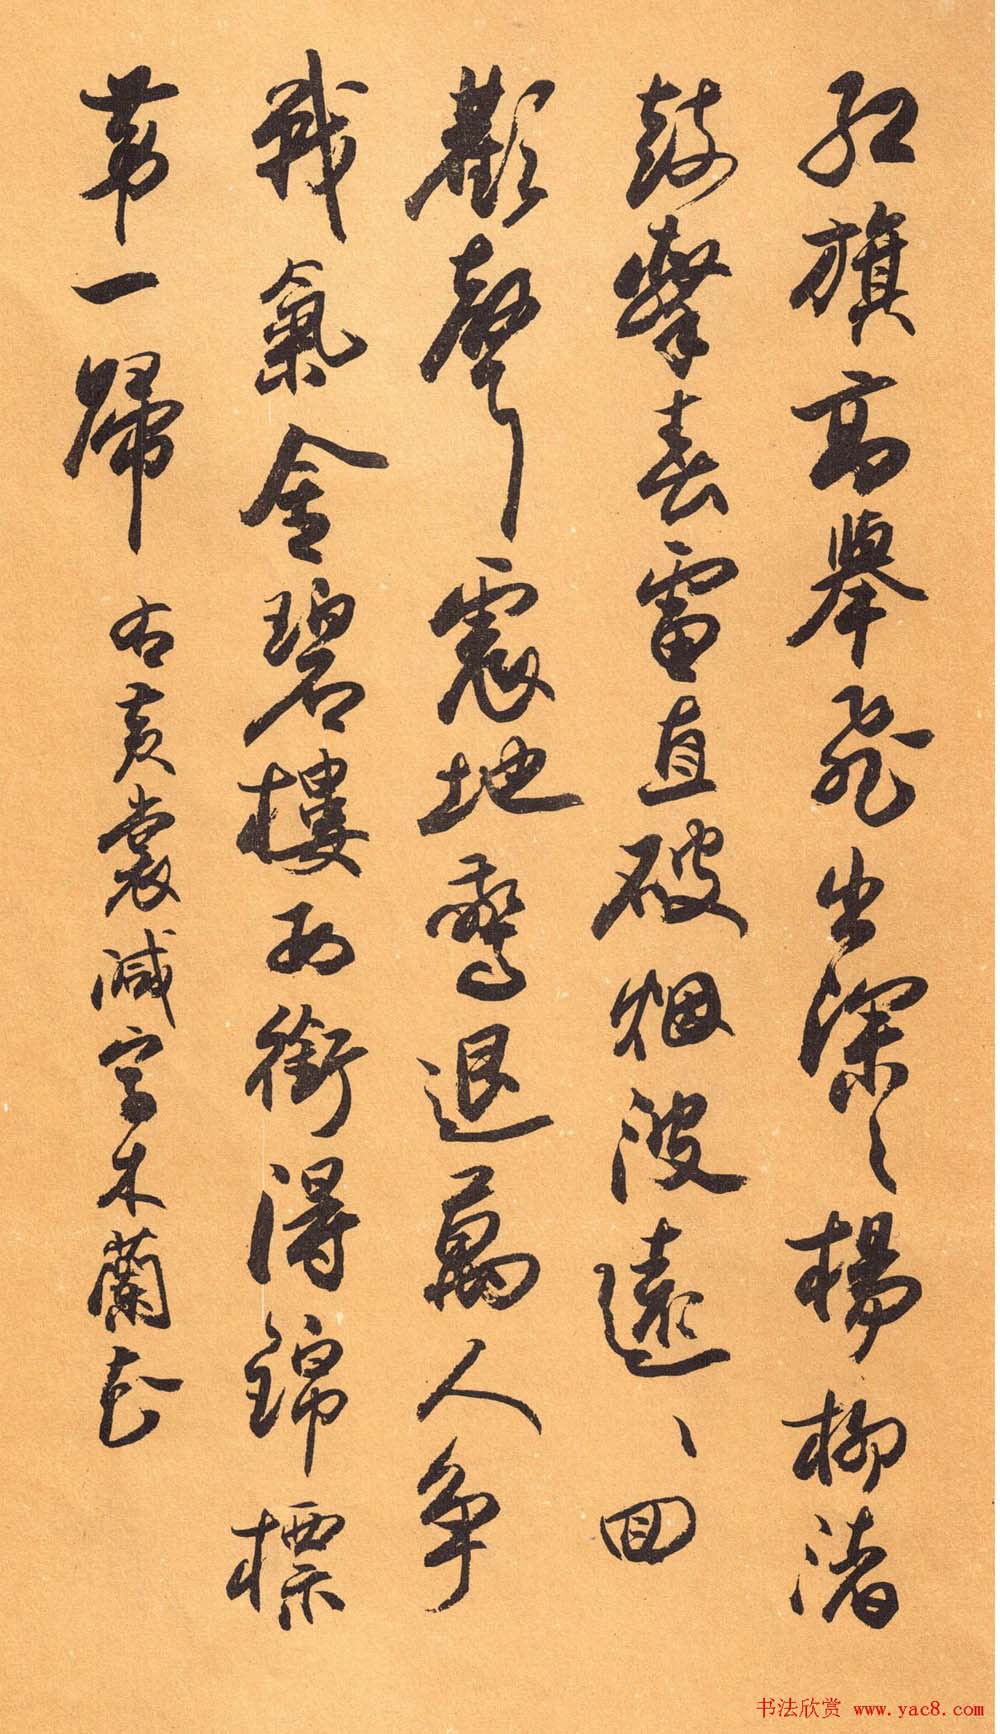 红旗高舉飛出深〻楊柳渚
鼓擊春雷直破烟波遠〻回
歡聲震地驚退萬人争
戰氣金碧樓西銜得錦標
第一歸 右黄裳減字木蘭花
书法欣赏 www.yac8.com